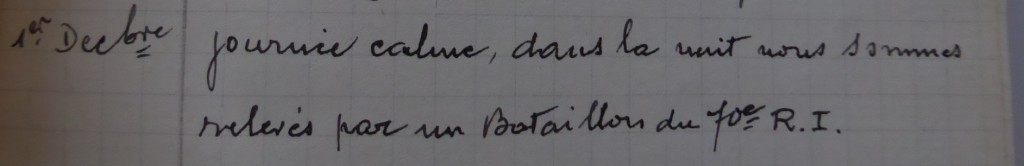 1er Decbre journée calme, dans la nuit nous sommes
relevés par un Bataillon du 70e R.I.